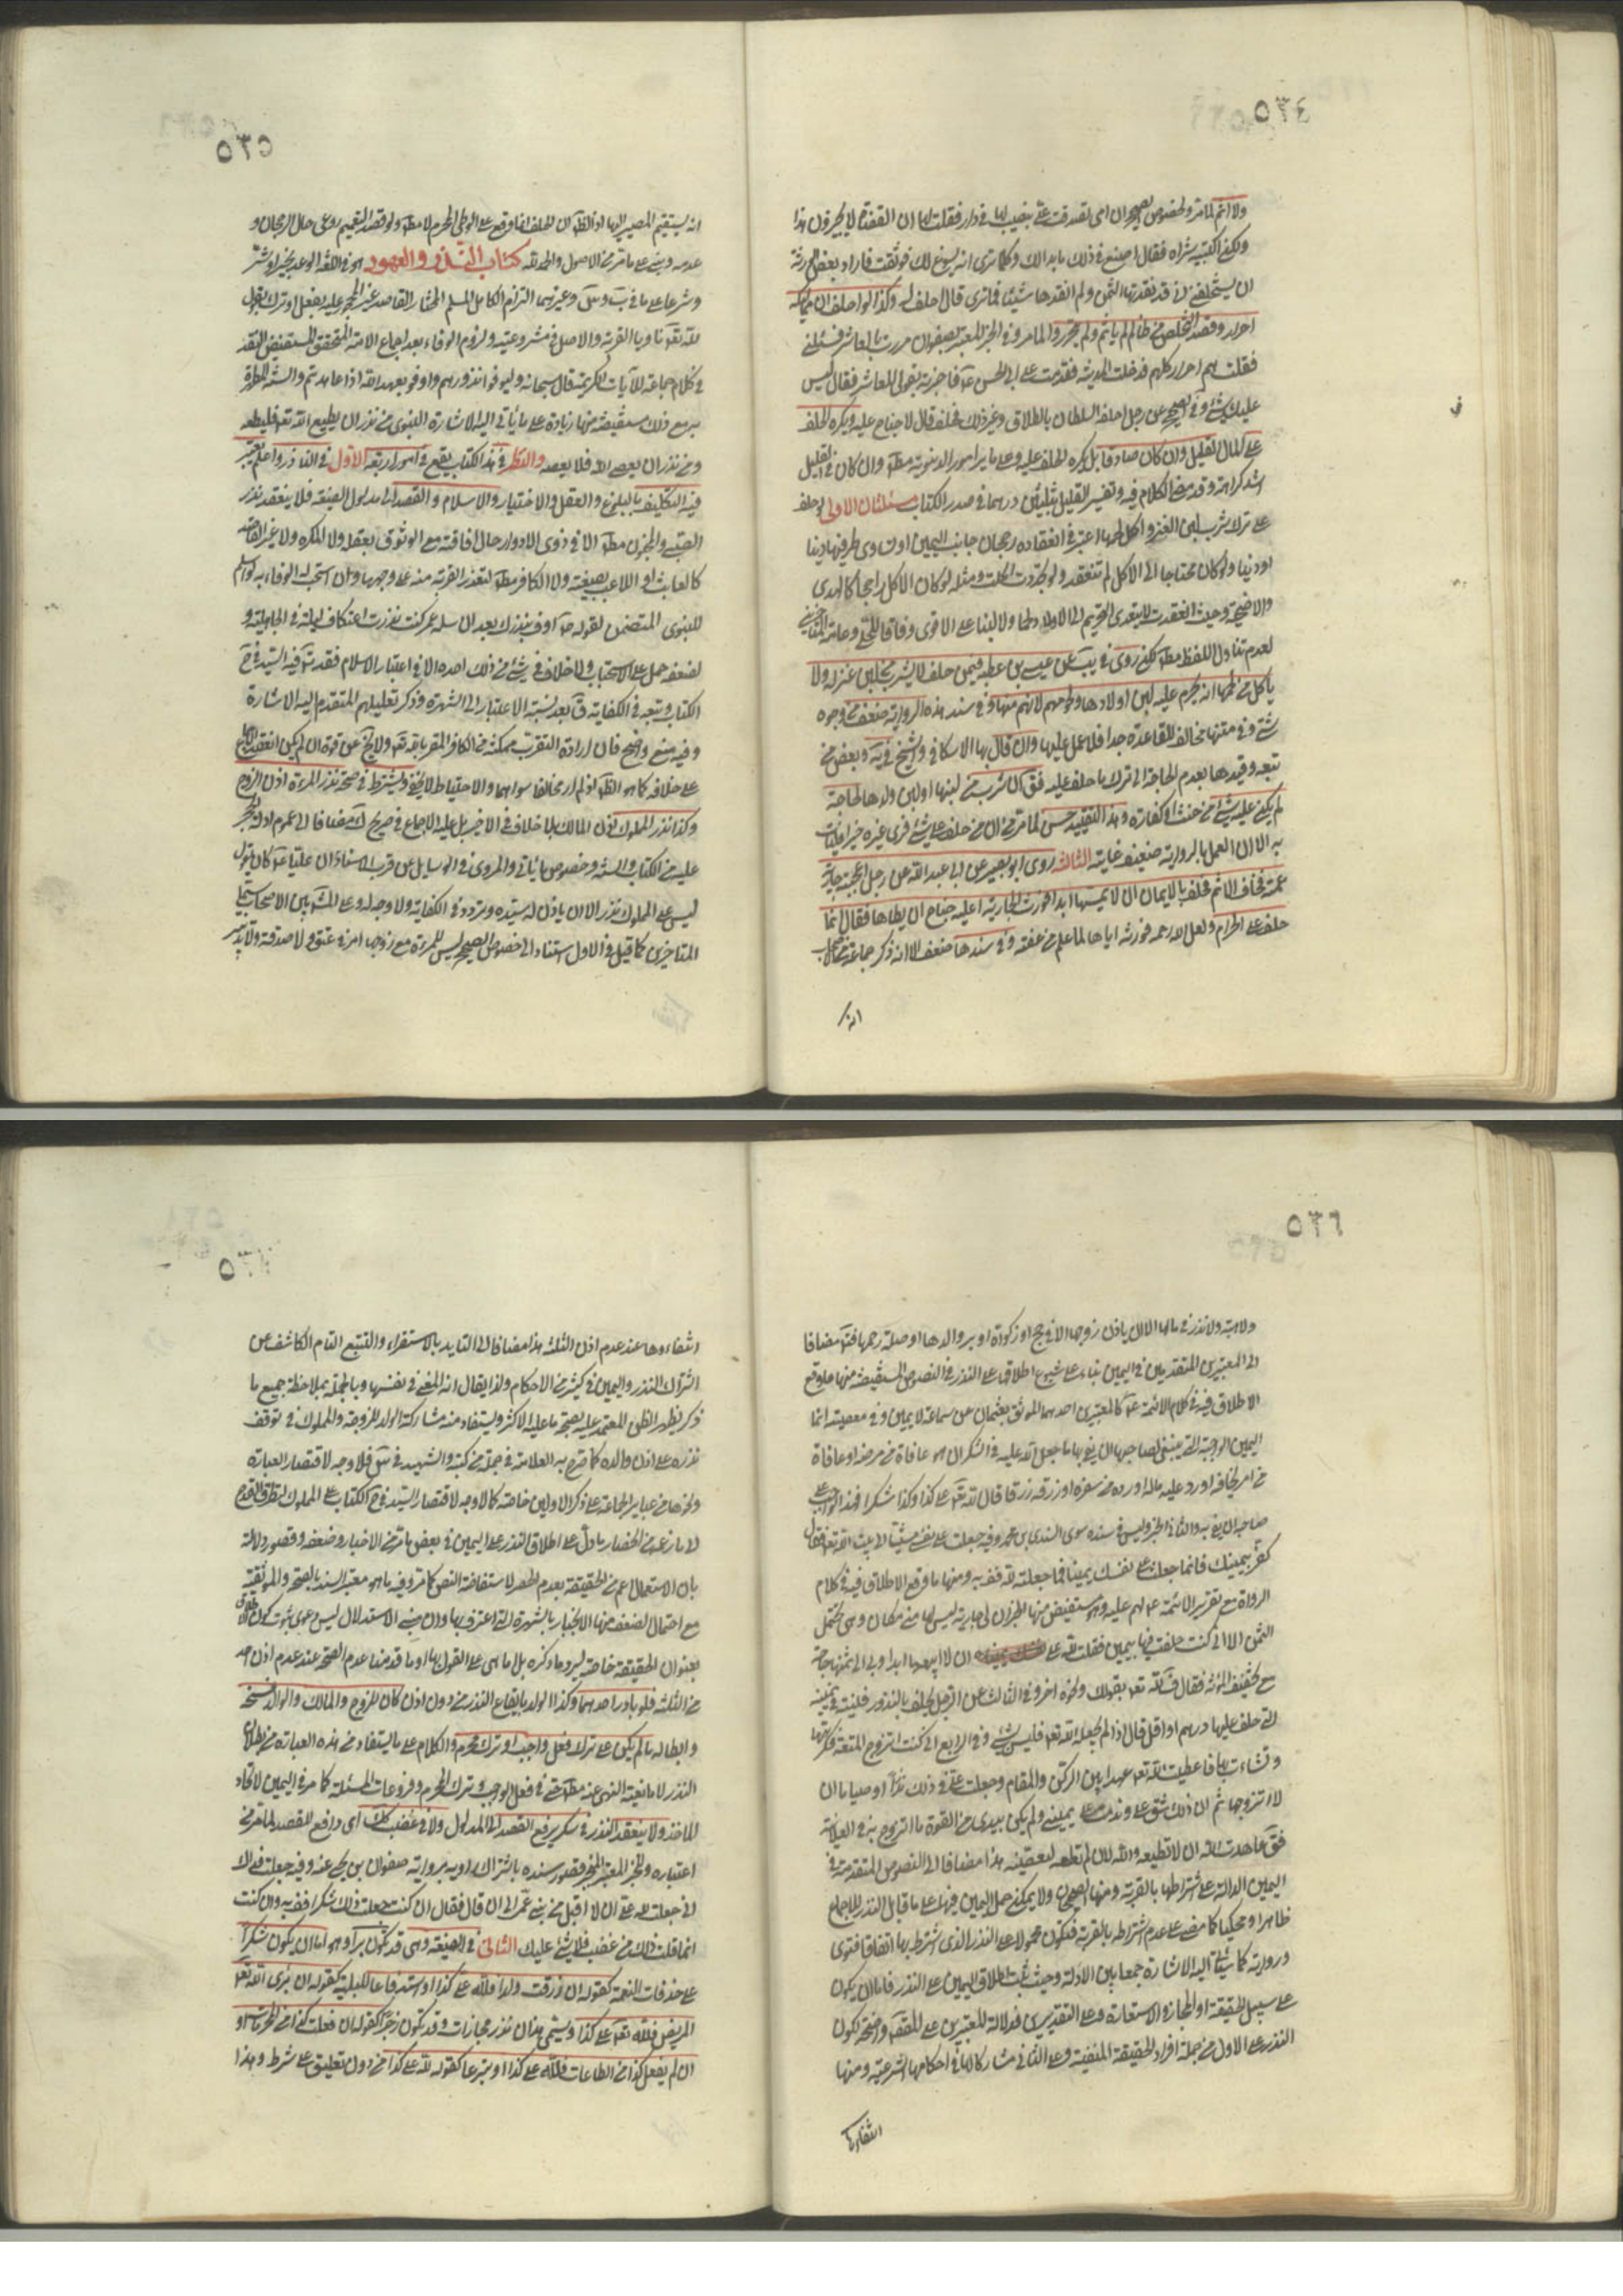 ٥٣٤
ولا اثم لما مر ولخصوص الصحيح ان امى تصدقت على بنصيب لها فى دار فقلت لها ان القضاة لا يجيزون هذا
ولكن اكتبيه شراء فقال اصنع فى ذلك ما بدا لك وكلما ترى انه يسوغ لك فوثقت فاراد بعض الورثة
ان يستحلفنى انى قد نقدتها الثمن ولم انقدها شيئا فما ترى قال احلف له وكذا لو احلف ان مماليكه
احرار وقصد التخلص من ظالم لم ياثم ولم يتحرروا لما مر وفى الخبر
فقلت هم احرار كلهم فدخلت المدينة فقدمت على ابى الحسن ع فاخبرته بقولى للعاشر فقال ليس
عليك شئ وفى الصحيح عن رجل احلفه السلطان بالطلاق وغير ذلك فحلف قال لا جناح عليه ويكره الحلف
على المال القليل وان كان صادقا بل يكره الحلف عليه وعلى ما ير امور الدنيوية مط وان كان فى القليل
اشد كراهة وقد مضى الكلام فيه وتفسير القليل بثلثين درهما فى صدر الكتاب مسئلتان الاولى لو حلف
على ترك شرب لبن العنز واكل لحمها اعتبر فى انعقاده رجحان جانب اليمين او تساوى طرفيها دينا
او دنيا ولو كان محتاجا الى الاكل لم تنعقد ولو تجددت انحلت ومثله لو كان الاكل راجحا كالهدى
والاضحية وحيث انعقدت لا يتعدى التحريم الى الاولاد ولحما ولا لبنا على الاقوى وفاقا للحلى وعامة المتأخرين
لعدم تناول اللفظ مط لكن روى فى يب عن عيسى بن عطية فيمن حلف لا يشرب من لبن عنز له ولا
ياكل من لحمها انه يحرم عليه لبن اولادها ولحومهم لانهم منها وفى سند هذه الرواية ضعف من وجوه
شتى وفى متنها مخالفة للقاعدة جدا فلا عمل عليها وان قال بها الاسكافى والشيخ فى ية وبعض من
تبعه وقيدها بعدم الحاجة الى ترك ما حلف عليه فق ان شرب من لبنها او لبن ولدها لحاجة
لم يكن عليه شئ من حنث او كفارة وهذا التقييد حسن لما مر من ان من حلف على شئ فرأى غيره خيرا فليات
به الا ان العمل بالرواية ضعيف غايته الثالثة روى ابو بصير عن ابى عبد الله عن رجل اعجبته جارية
عمته فخاف الاثم فحلف بالايمان ان لا يمسها ابدا فورث الجارية اعليه جناح ان يطاها فقال انما
حلف على الحرام ولعل الله رحمه فورثه اياها لما علم من عفته وفى سندها ضعف الا انه ذكر جماعة من الاصحاب
انه
٥٣٥
انه يستقيم المصير اليها اذ الظ ان الحلف انما وقع على الوطى المحرم لا مط ولو قصد التعميم روعى حال الرجحان و
عدمه وبنى على ما تر من الاصول والحمد لله كتاب النذر والعهود هو فى اللغة الوعد بخير او شر
وشرعا على ما فى يب وس وغيرهما التزام الكامل المسلم المختار القاصد غير المحجور عليه بفعل او ترك بقول
لله تعالى ناويا القربة والاصل فى مشروعيته ولزوم الوفاء بعد اجماع الامة المتحقق المستفيض النقد
فى كلام جماعة الآيات الكريمة قال سبحانه وليوفوا نذورهم واوفوا بعهد الله اذا عاهدتم والسنة المطهرة
بر مع ذلك مستفيضة منها زيادة على ما يأتى اليه الاشارة للنبوى من نذر ان يطيع الله تعالى فليطعه
ومن نذر ان يعصى الله فلا يعصه والنظر فى هذا الكتاب يقع فى امور اربعة الاول فى الناذر واعلم يعتبر
فيه التكليف بالبلوغ والعقل والاختيار والاسلام والقصد الى مدلول الصيغة فلا ينعقد نذر
الصبى والمجنون مط الا فى ذوى الادوار حال افاقته مع الوثوق بعقله ولا المكره ولا غير القاصد
كالعابث او اللاعب بصيغته ولا الكافر مط لتعذر القربة منه على وجهها وان استحب له الوفاء به لو اسلم
للنبوى المتضمن لقوله ص اوف بنذرك بعد ان سئله عمر كنت نذرت اعتكاف ليلة فى الجاهلية و
لضعفه حمل على الاستحباب ولا خلاف فى شئ من ذلك اجده الا فى اعتبار الاسلام فقد شك فيه السيد فى ح
الكتاب وتبعه فى الكفاية ق بعد نسبة الاعتبار الى الشهرة وذكر تعليلهم المتقدم اليه الاشارة
وفيه منع واضح فان ارادة التقرب ممكنة من الكافر المقر بالله تعالى ولا يخ عن قوة ان لم يكن انعقد الاجماع
على خلافه كما هو الظ اذ لم ار مخالفا سواهما والاحتياط لا يخفى ويشترط فى صحة نذر المرءة اذن الزوج
وكذا نذر المملوك اذن المالك بلا خلاف فى الاخير بل عليه الاجماع فى صريح ك مضافا الى عموم ادلة الحجر
عليه من الكتاب والسنة وخصوص ما يأتى والمروى فى الوسايل عن قرب الاسناد ان عليا ع كان يقول
ليس على المملوك نذر الا ان ياذن له سيده وتردد فى الكفاية ولا وجه له وعلى المش بين الاصحاب سيما
المتاخرين كما قيل فى الاول استنادا الى خصوص الصحيح ليس للمرءة مع زوجها امر فى عتق ولا صدقة ولا تدبير
٥٣٦
ولا هبة ولا نذر فى مالها الا ان ياذن زوجها الا فى حج او زكوة او بر والديها او صلة رحمها فت مضافا
الى المعتبرين المتقدمين فى اليمين بناء على شيوع اطلاقه على النذر فى النصوص المستفيضة منها ما وقع
الاطلاق فيه فى كلام الائمة ع كالمعتبرين احدهما الموثق بعثمان عن سماعة لا يمين فى معصية انما
اليمين الواجبة التى ينبغى لصاحبها ان يفى بها ما جعل الله عليه فى الشكر ان هو عافاه من مرضه او عافاه
من امر يخافه او رد عليه ماله او رده من سفره او رزقه رزقا قال لله تعالى على كذا وكذا شكرا فهذا الواجب على
صاحبه ان يفى به والثانى الخبر وليس فى سنده سوى السندى بن محمد وفيه جعلت على نفسى مشيا الى بيت الله تعالى فقال
كفر بيمينك فانما جعلت على نفسك يمينا فما جعلته لله فف به ومنها ما وقع الاطلاق فيه فى كلام
الرواة مع تقرير الائمة ع لهم عليه وهو مستفيض منها الخبران لى جارية ليس لها منى مكان وهى تحتمل
الثمن الا انى كنت حلفت فيها بيمين فقلت لله على ان لا ابيعها ابدا ولى الى ثمنها حاجة
مع تخفيف المؤنة فقال ف لله تعالى بقولك ونحوه اخر وفى الثالث عن الرجل يحلف بالنذر ونيته فى يمينه
التى حلف عليها درهم او اقل قال اذا لم يجعل لله تعالى فليس بشئ وفى الرابع انى كنت اتزوج المتعة فكرهتها
وتشاءمت بها فاعطيت الله تعالى عهدا بين الركن والمقام وجعلت على فى ذلك نذرا وصياما ان
لا اتزوجها ثم ان ذلك شق على وندمت على يمينى ولم يكن بيدى من القوة ما اتزوج به فى العلانية
فق عاهدت الله ان لا تطيعه والله لئن لم تطعه لتعصينه هذا مضافا الى النصوص المتقدمة فى
اليمين الدالة على اشتراطها بالقربة ومنها الصحيحان ولا يمكن حمل اليمين فيها على ما قابل النذر للاجماع
ظاهرا ومحكيا كما مضى على عدم اشتراطه بالقربة فتكون محمولة على النذر الذى اشترط بها اتفاقا فتوى
ورواية كما سيأتى اليه الاشارة جمعا بين الادلة وحيث ثبت اطلاق اليمين على النذر فاما ان يكون
على سبيل الحقيقة او المجاز والاستعارة وعلى التقديرين فدلالة المعتبرين على المقصد واضحة لكون
النذر على الاول من جملة افراد الحقيقة المنفية وعلى الثانى مشاركا لها فى احكامها الشرعية ومنها
انتفاءها
٥٣٧
انتفاءوها عند عدم اذن الثلثة هذا مضافا الى التايد بالاستقراء والتتبع التام الكاشف عن
اشتراك النذر واليمين فى كثير من الاحكام ولذا يقال انه المعنى فى نفسها وبالجملة بملاحظة جميع ما
ذكر يظهر الظن المعتمد عليه بصحة ما عليه الاكثر ويستفاد منه مشاركة الولد للزوجة والمملوك فى توقف
نذره على اذن والده كما صرح به العلامة فى جملة من كتبه والشهيد فى س فلا وجه لاقتصار العبارة
ونحوها من عباير الجماعة على ذكر الاولين خاصة كما لا وجه لاقتصار السيد فى ح الكتاب على المملوك لتطرق القدح
لا ما زعمه من انحصار ما دل على اطلاق النذر على اليمين فى بعض ما تر من الاخبار وضعفه وقصور دلالته
بان الاستعمال اعم من الحقيقة بعدم الحصر لاستفاضة النص كما مر وفيه ما هو معتبر السند بالصحة والموثقية
مع احتمال الضعف منها الانجبار بالشهرة التى اعترف بها وان مبنى الاستدلال ليس دعوى ثبوت كون الاطلاق
بعنوان الحقيقة خاصة ليرد ما ذكره بل اما هى على القول بها او ما قدمنا عدم الصحة عند عدم اذن احد
من الثلثة فلو بادر احدهما وكذا الولد بايقاع النذر من دون اذن كان للزوج والمالك والوالد فسخه
وابطاله ما لم يكن على ترك فعل واجب او ترك محرم والكلام على ما يستفاد من هذه العبارة من بطلان
النذر لا مانعية النهى عنه مط حتى فى فعل الواجب وترك المحرم وفروعات المسئلة كما مر فى اليمين لاتحاد
الماخذ ولا ينعقد النذر فى سكر يرفع القصد الى المدلول ولا فى غضب كك اى دافع للقصد لما مر من
اعتباره وللخبر المعتبر المنجبر قصور سنده باشتراك راويه برواية صفوان بن يحيى عنه وفيه جعلت فداك
انى جعلت لله على ان لا اقبل من بنى عمى الى ان قال فقال ان كنت جعلت ذلك شكرا فف به وان كنت
انما قلت ذلك من غضب فلا شئ عليك الثانى فى الصيغة وهى قد تكون برا وهو اما ان يكون شكرا
على حذفات النعمة كقوله ان رزقت ولدا فلله على كذا او استدفاعا للبلية كقوله ان برئ الله تعالى
المريض فلله تعالى على كذا ويسمى هذان نذر مجازات وقد تكون زجرا كقوله ان فعلت كذا من المحرمات او
ان لم يفعل كذا من الطاعات فلله على كذا او تبرعا كقوله لله على كذا من دون تعليق على شرط وهذا